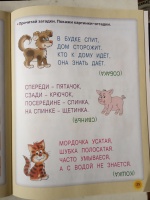 Прочитай загадки. Покажи картинки-отгадки.
В БУДКЕ СПИТ,
ДОМ СТОРОЖИТ.
КТО К ХОЗЯИНУ ИДЁТ,
ОНА ЗНАТЬ ДАЁТ.
(СОБАКА)
СПЕРЕДИ - ПЯТАЧОК,
СЗАДИ - КРЮЧОК,
ПОСЕРЕДИНЕ - СПИНКА,
НА СПИНКЕ - ЩЕТИНКА.
(СВИНЬЯ)
МОРДОЧКА УСАТАЯ,
ШУБКА ПОЛОСАТАЯ,
ЧАСТО УМЫВАЕТСЯ,
А С ВОДОЙ НЕ ЗНАЕТСЯ.
(КОШКА)